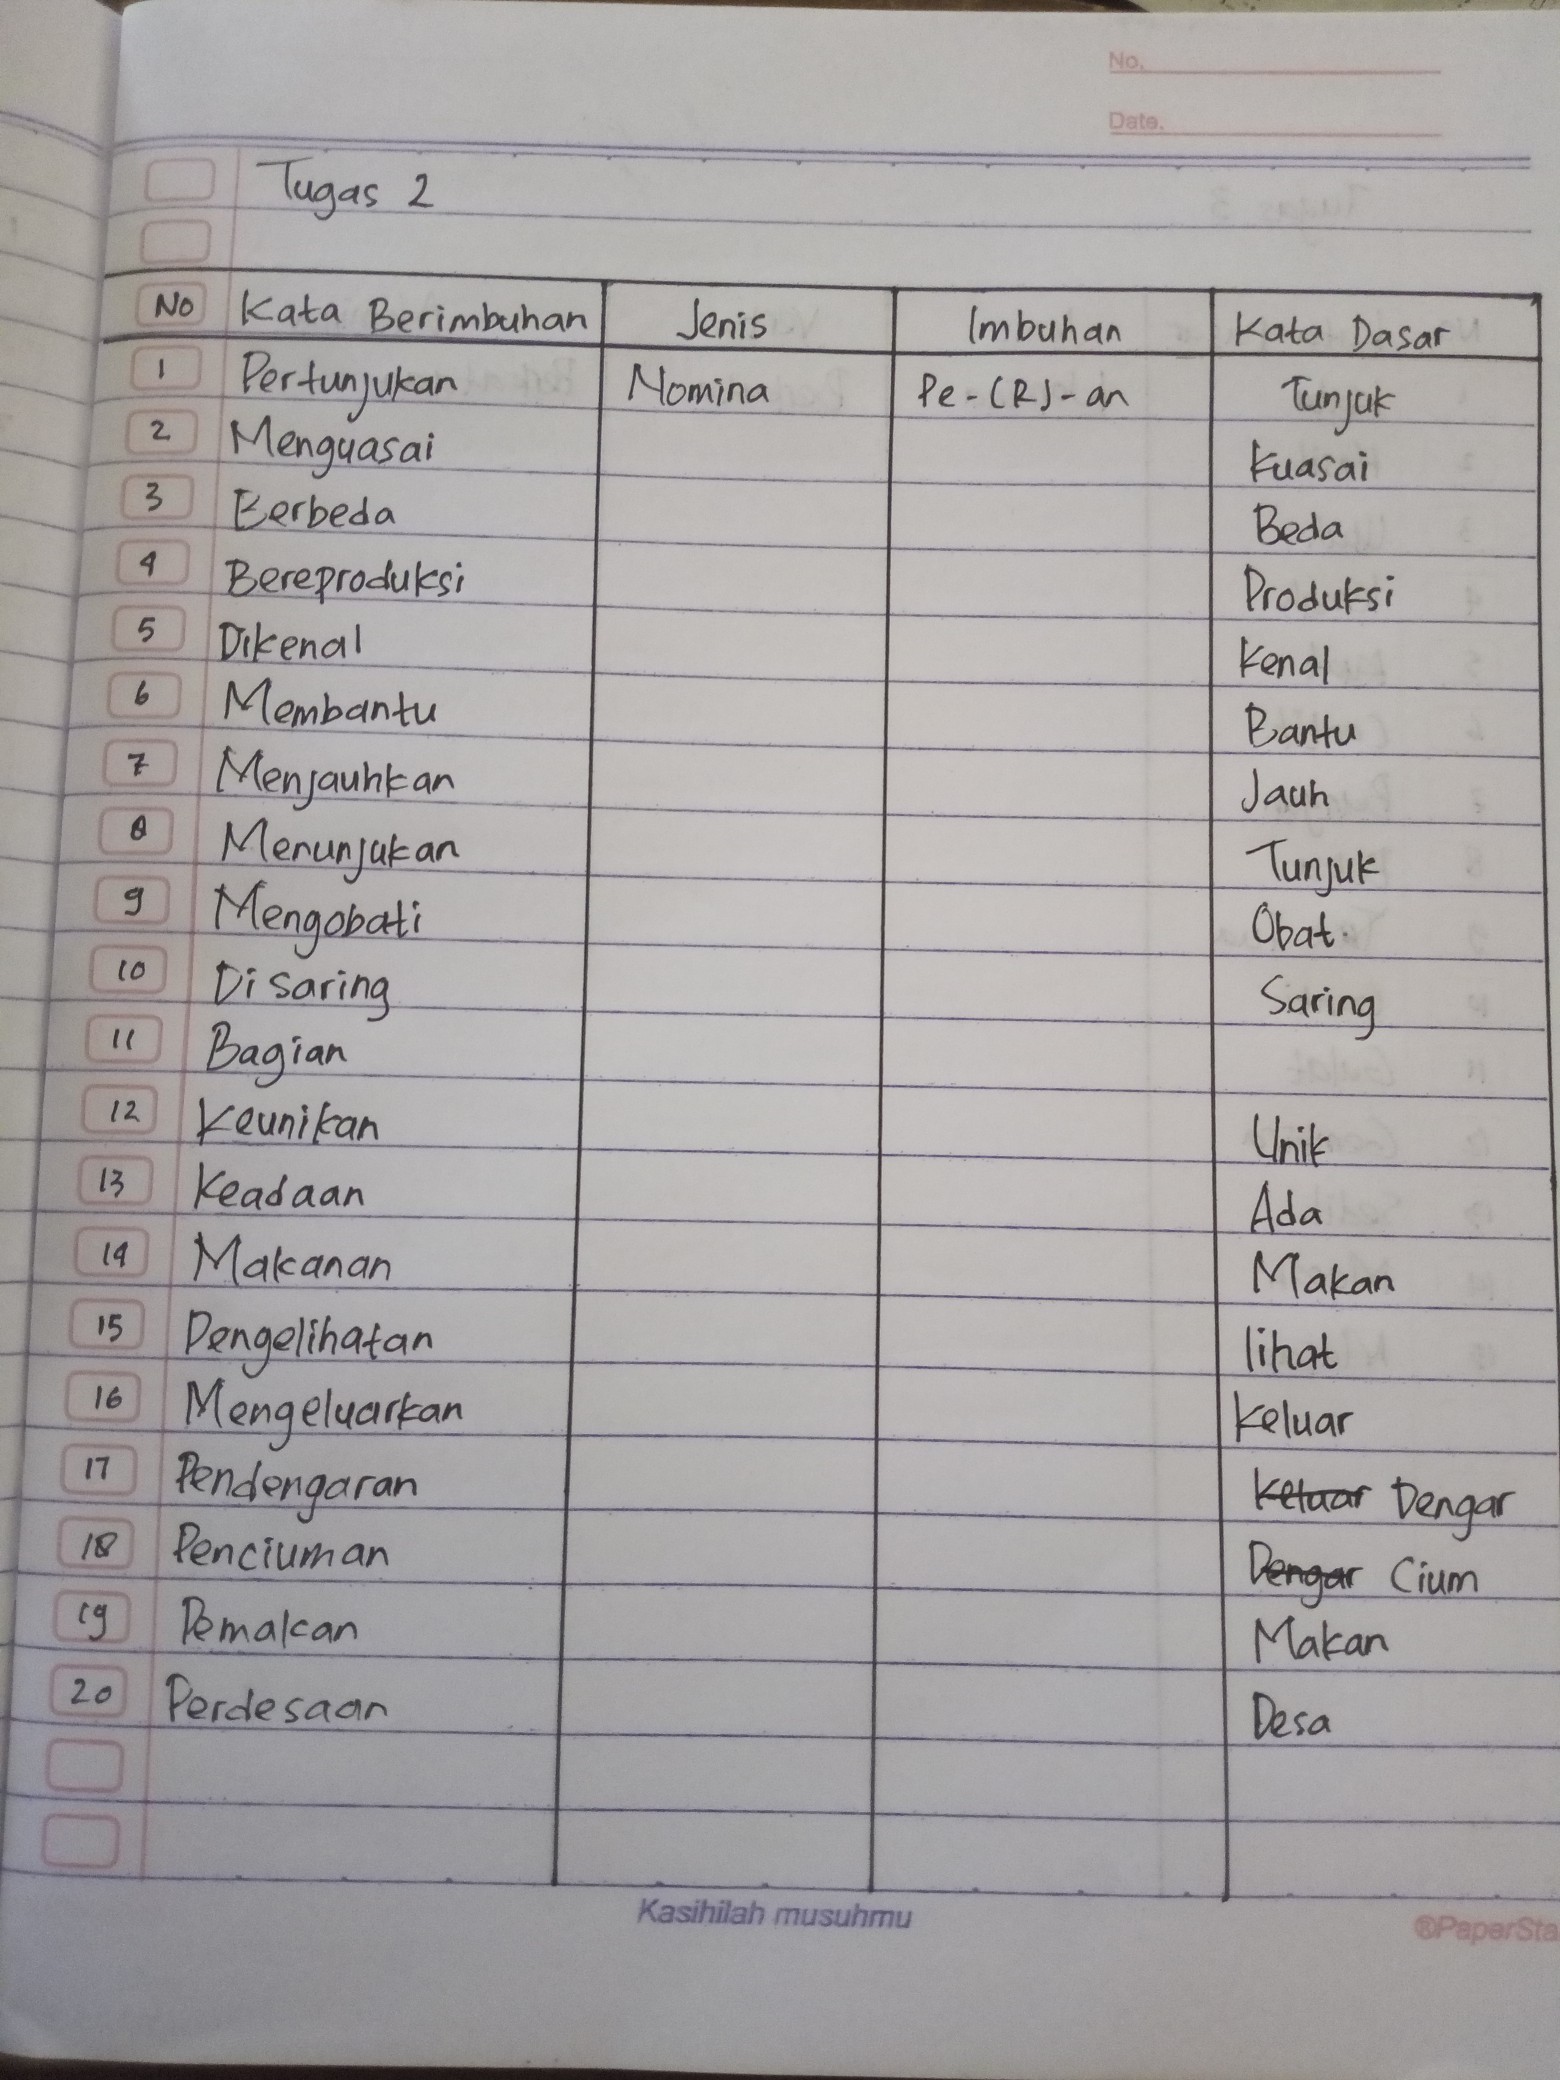 No.
Date.
Tugas 2
No Kata Berimbuhan Jenis Imbuhan Kata Dasar
1 Pertunjukan Nomina Pe-(R)-an Tunjuk
2 Menguasai Kuasai
3 Berbeda Beda
4 Bereproduksi Produksi
5 Dikenal Kenal
6 Membantu Bantu
7 Menjauhkan Jauh
8 Menunjukan Tunjuk
9 Mengobati Obat.
10 Di saring Saring
11 Bagian
12 Keunikan Unik
13 Keadaan Ada
14 Makanan Makan
15 Pengelihatan lihat
16 Mengeluarkan Keluar
17 Pendengaran Keluar Dengar
18 Penciuman Dengar Cium
19 Pemakan Makan
20 Perdesaan Desa
Kasihilah musuhmu
®PaperSta